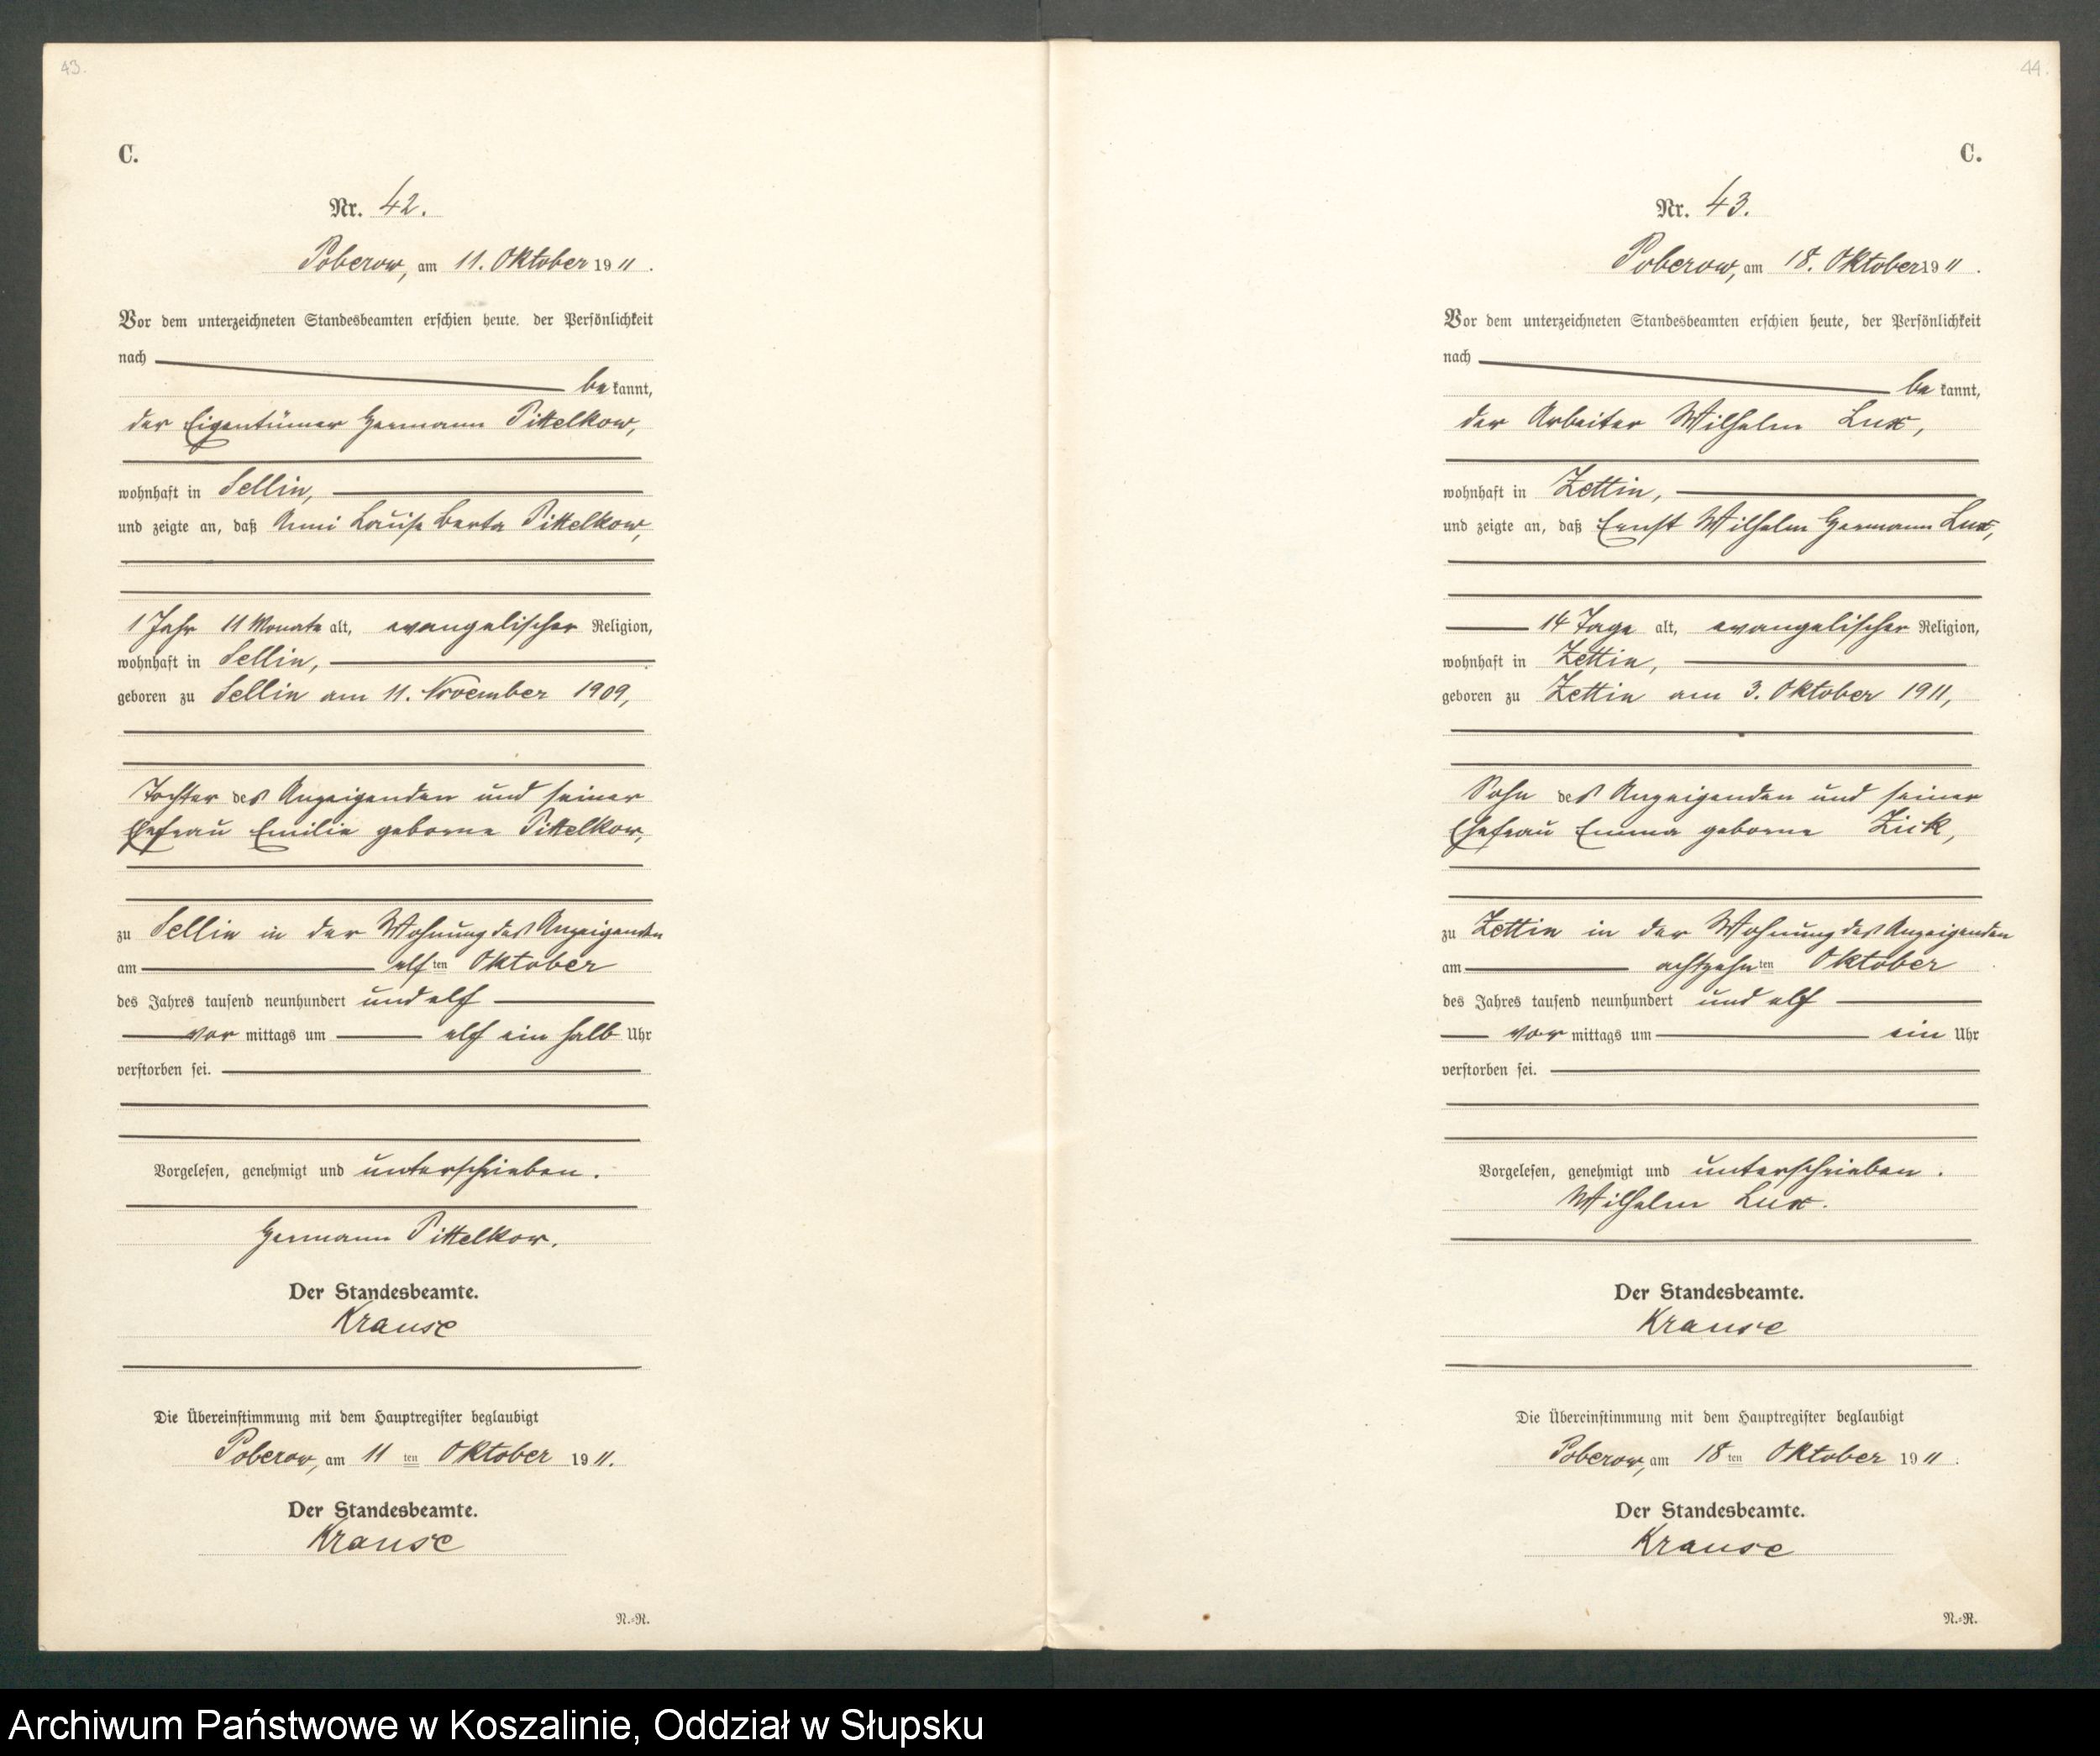 43.
C.
Nr. 42.
Poberow, am 11. Oktober 19 11.
Vor dem unterzeichneten Standesbeamten erschien heute, der Persönlichkeit
nach
bekannt,
der Eigentümer Hermann Pittelkow,
wohnhaft in Sellin,
und zeigte an, daß Anni Lauise Berta Pittelkow,
1 Jahr 11 Monate alt, evangelischer Religion,
wohnhaft in Sellin,
geboren zu Sellin am 11. November 1909,
Tochter des Anzeigenden und seiner
Ehefrau Emilie geborne Pittelkow,
zu Sellin in der Wohnung des Anzeigenden
am elften Oktober
des Jahres tausend neunhundert und elf
vor mittags um elf ein halb Uhr
verstorben sei.
Vorgelesen, genehmigt und unterschrieben.
Hermann Pittelkow.
Der Standesbeamte.
Krause
Die Übereinstimmung mit dem Hauptregister beglaubigt
Poberow, am 11 ten Oktober 19 11.
Der Standesbeamte.
Krause
N.=R.
44.
C.
Nr. 43.
Poberow, am 18. Oktober 19 11.
Vor dem unterzeichneten Standesbeamten erschien heute, der Persönlichkeit
nach
bekannt,
der Arbeiter Wilhelm Lux,
wohnhaft in Zettin,
und zeigte an, daß Ernst Wilhelm Hermann Lux,
14 Tage alt, evangelischer Religion,
wohnhaft in Zettin,
geboren zu Zettin am 3. Oktober 1911,
Sohn des Anzeigenden und seiner
Ehefrau Emma geborne Zick,
zu Zettin in der Wohnung des Anzeigenden
am achtzehnten Oktober
des Jahres tausend neunhundert und elf
vor mittags um ein Uhr
verstorben sei.
Vorgelesen, genehmigt und unterschrieben.
Wilhelm Lux.
Der Standesbeamte.
Krause
Die Übereinstimmung mit dem Hauptregister beglaubigt
Poberow, am 18 ten Oktober 19 11.
Der Standesbeamte.
Krause
N.=R.
Archiwum Państwowe w Koszalinie, Oddział w Słupsku